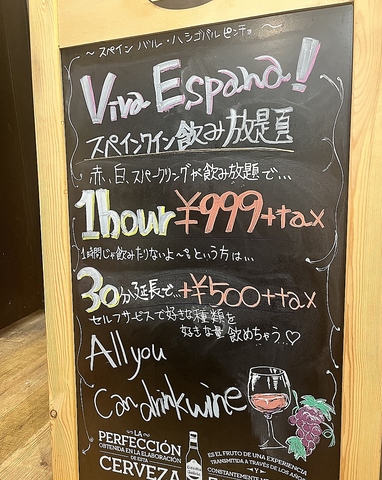 ～スペイン バル・ハシゴバル ピンチョ～
Viva Espana!
スペインワイン飲み放題
赤、白、スパークリングが飲み放題で…
1hour ¥999+tax
1時間じゃ飲みたりないよ～。という方は…
30分延長で…+¥500+tax
セルフサービスで好きな種類を
好きな量飲めちゃう♡
All you
Can drink wine
LA
PERFECCIÓN
OBTENIDA EN LA ELABORACIÓN
DE ESTA
CERVEZA
ES EL FRUTO DE UNA EXPERIENCIA
TRANSMITIDA A TRAVÉS DE LOS AÑOS
Y
CONSTANTEMENTE